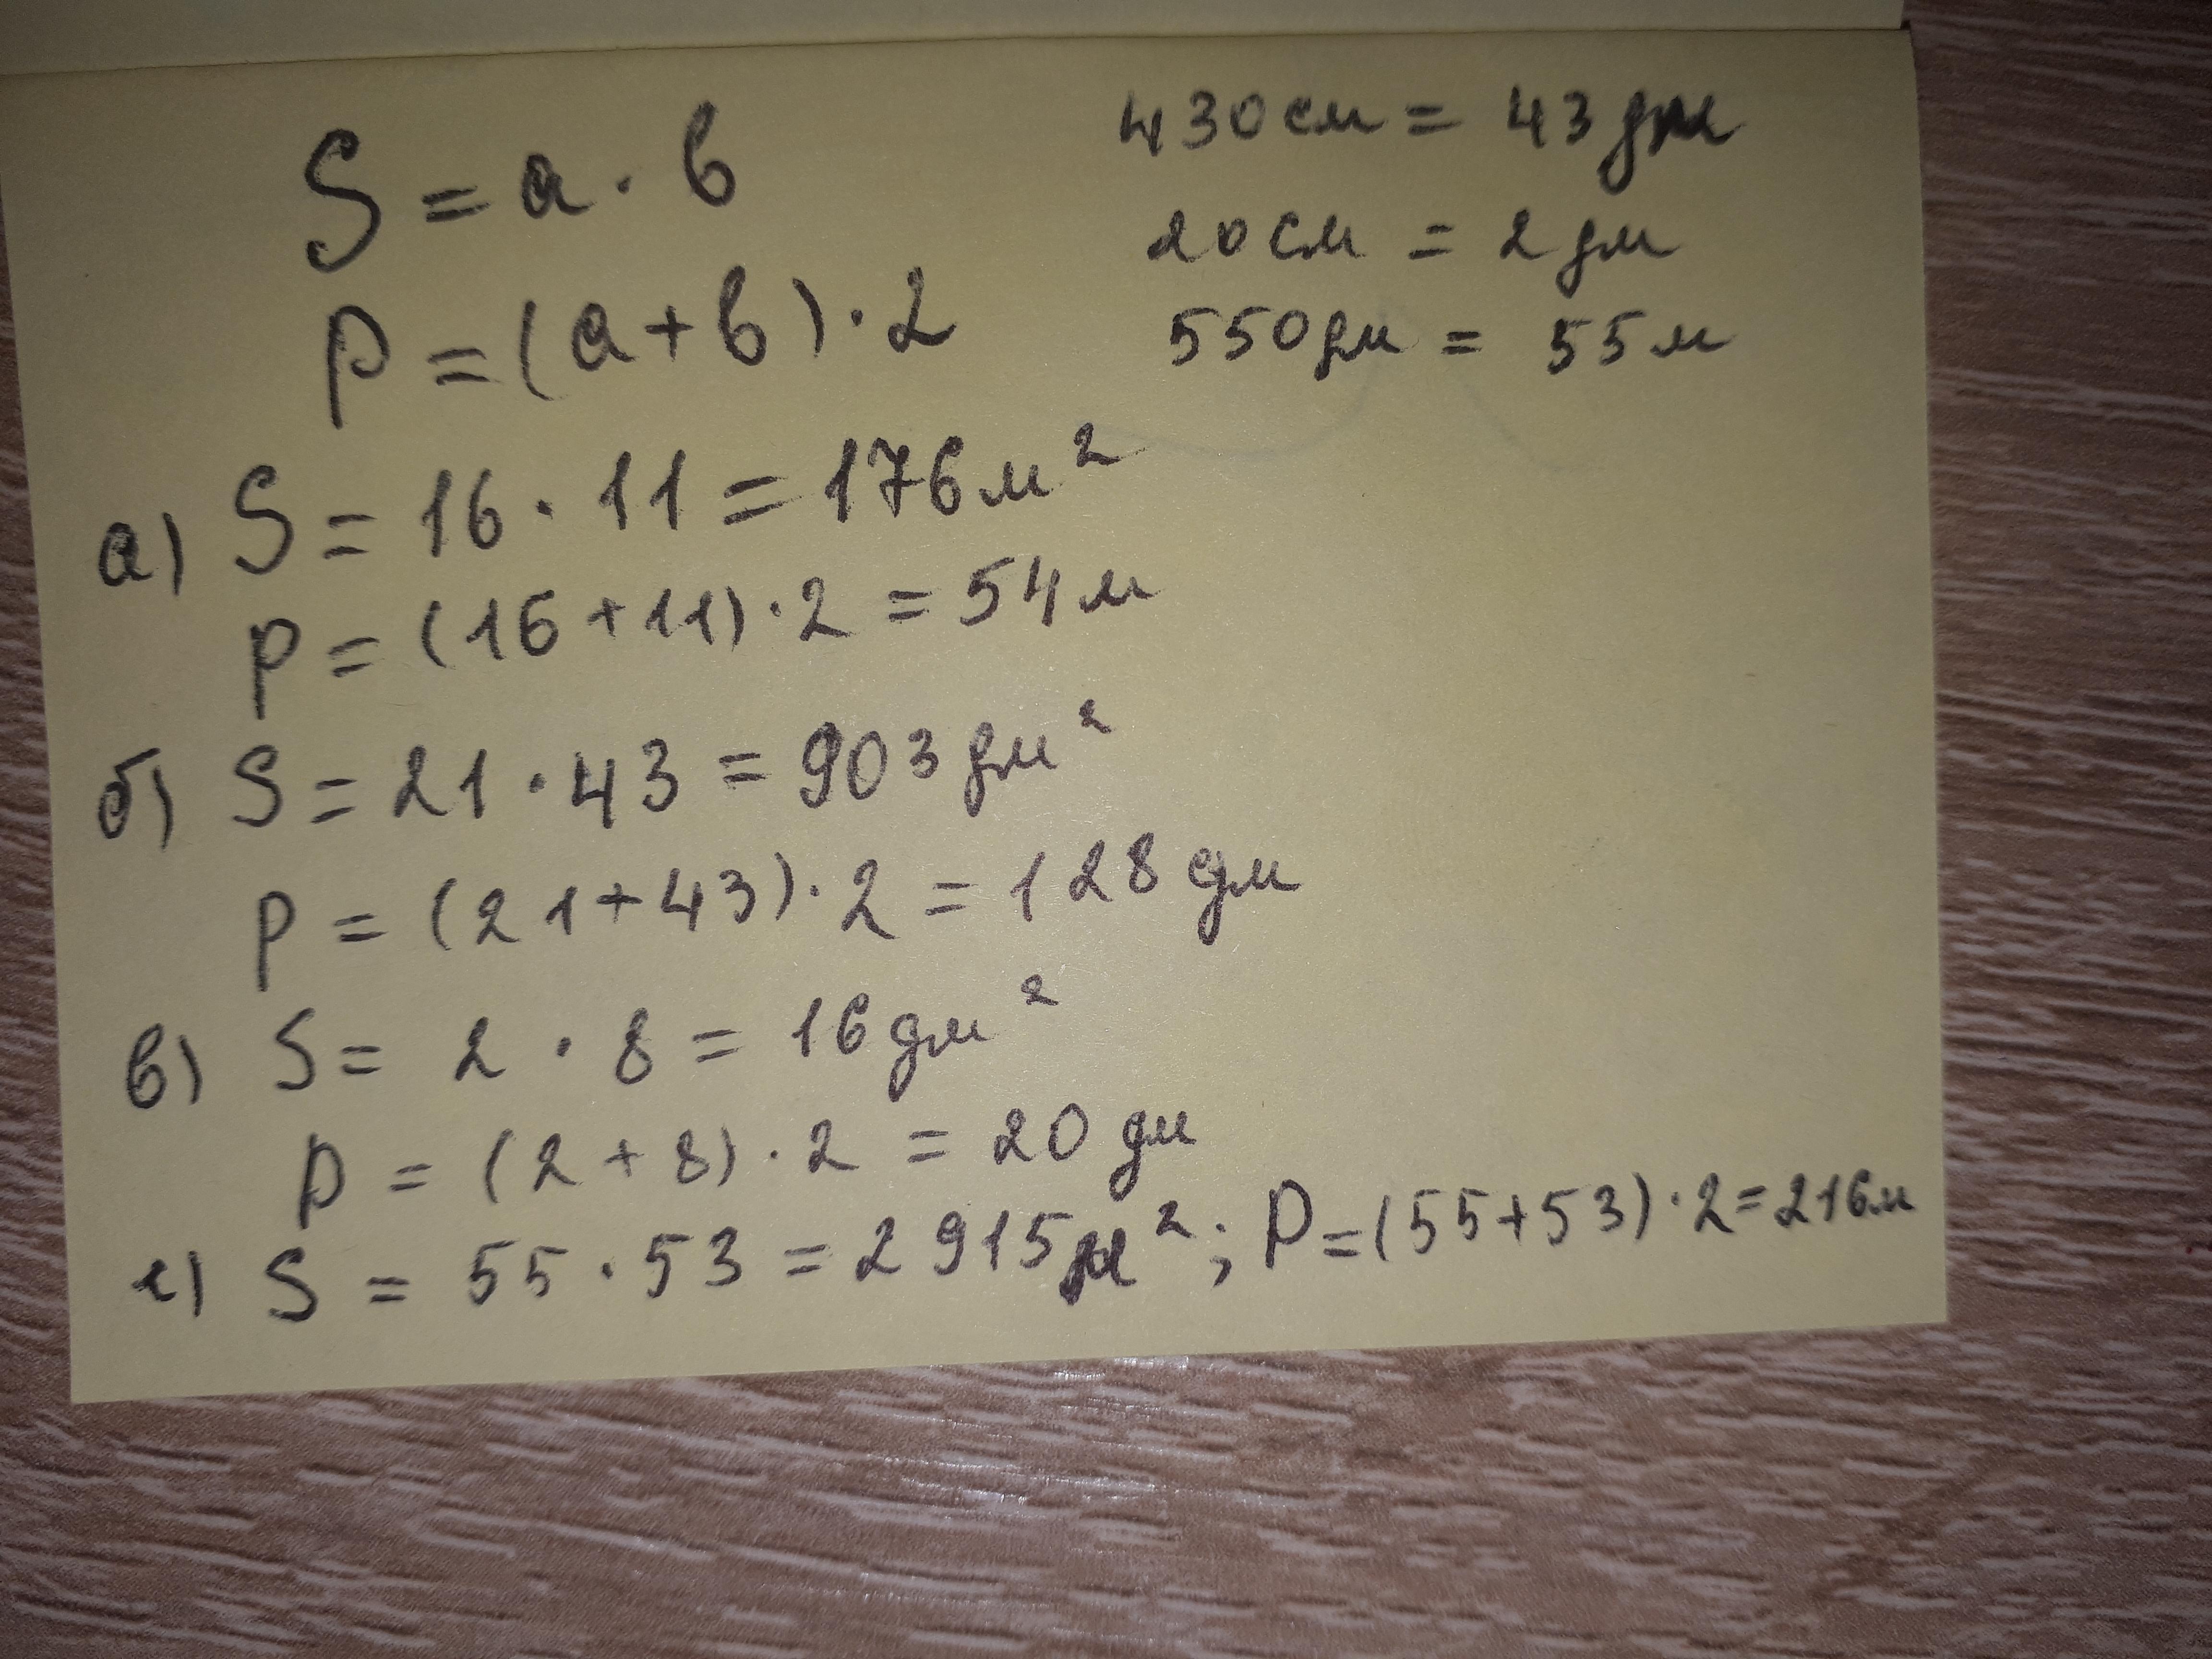 S = a · b
P = (a + b) · 2
430 см = 43 дм
20 см = 2 дм
550 дм = 55 м
а) S = 16 · 11 = 176 м²
P = (16 + 11) · 2 = 54 м
б) S = 21 · 43 = 903 дм²
P = (21 + 43) · 2 = 128 дм
в) S = 2 · 8 = 16 дм²
P = (2 + 8) · 2 = 20 дм
г) S = 55 · 53 = 2915 м²; P = (55 + 53) · 2 = 216 м